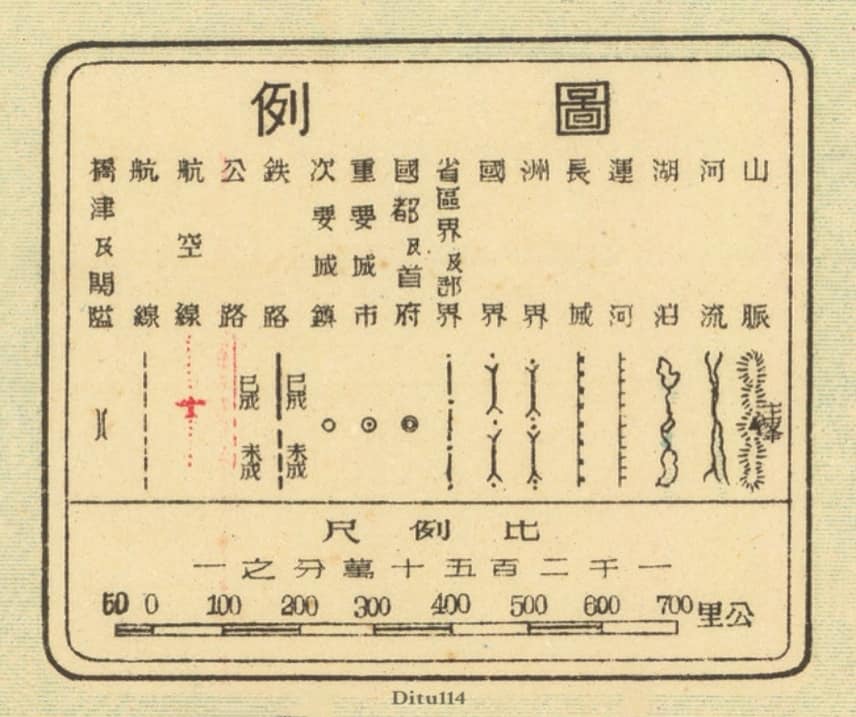 圖例
山脈
主峰
河流
湖泊
運河
長城
洲界
國界
省區界及部界
國都及首府
重要城市
次要城鎮
鉄路
已成
未成
公路
已成
未成
航空線
航線
橋津及關隘
比例尺
一千二百五十萬分之一
50 0 100 200 300 400 500 600 700 公里
Ditu114